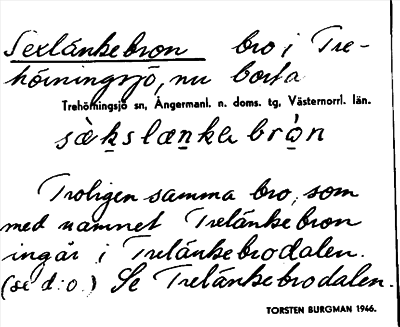 Sexlänkebron bro i Tre-
hörningsjö, nu borta
Trehörningsjö sn, Ångermanl. n. doms. tg, Västernorrl. län.
sàk̲slæn̲kabrò̲n
Troligen samma bro, som
med namnet Trelänkebron
ingår i Trelänkebrodalen.
(se d:o.) Se Trelänkebrodalen.
TORSTEN BURGMAN 1946.